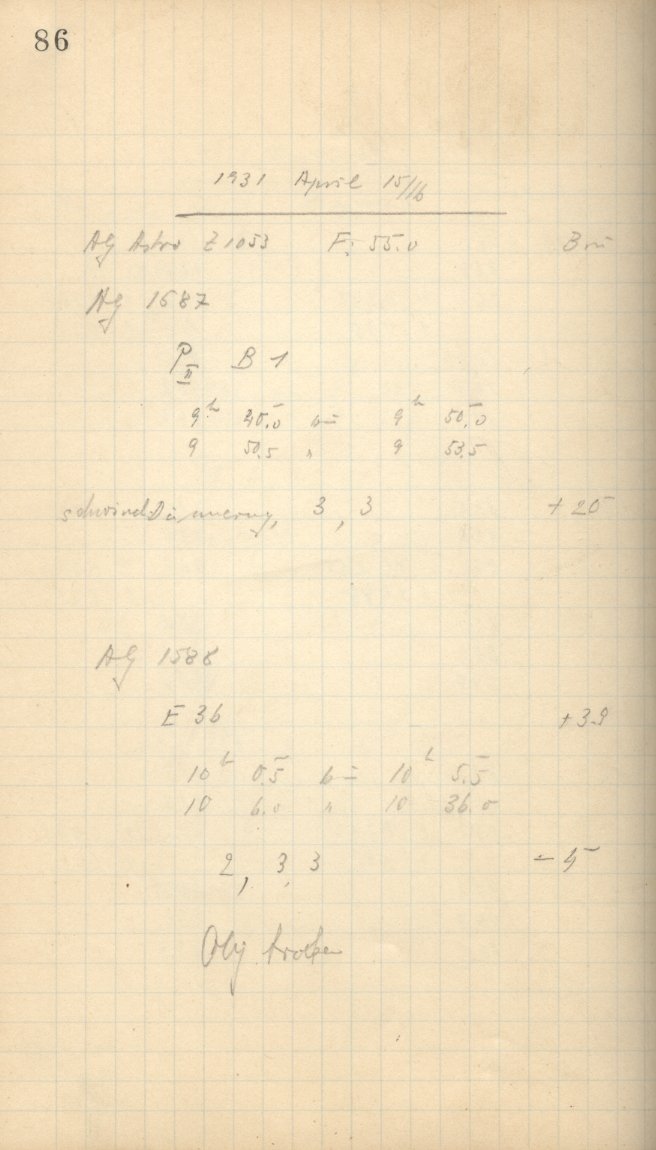 86
1931 April 15/16
AG Astro Z 1053 F: 55.0 Brü
AG 1587
P II B 1
9h 45.0 bis 9h 50.0
9 50.5 " 9 53.5
schwind. Dämmerung, 3, 3 + 25
AG 1588
E 36 + 39
10h 0.5 bis 10h 5.5
10 6.0 " 10 36.0
2, 3, 3 - 5
Obj trocken